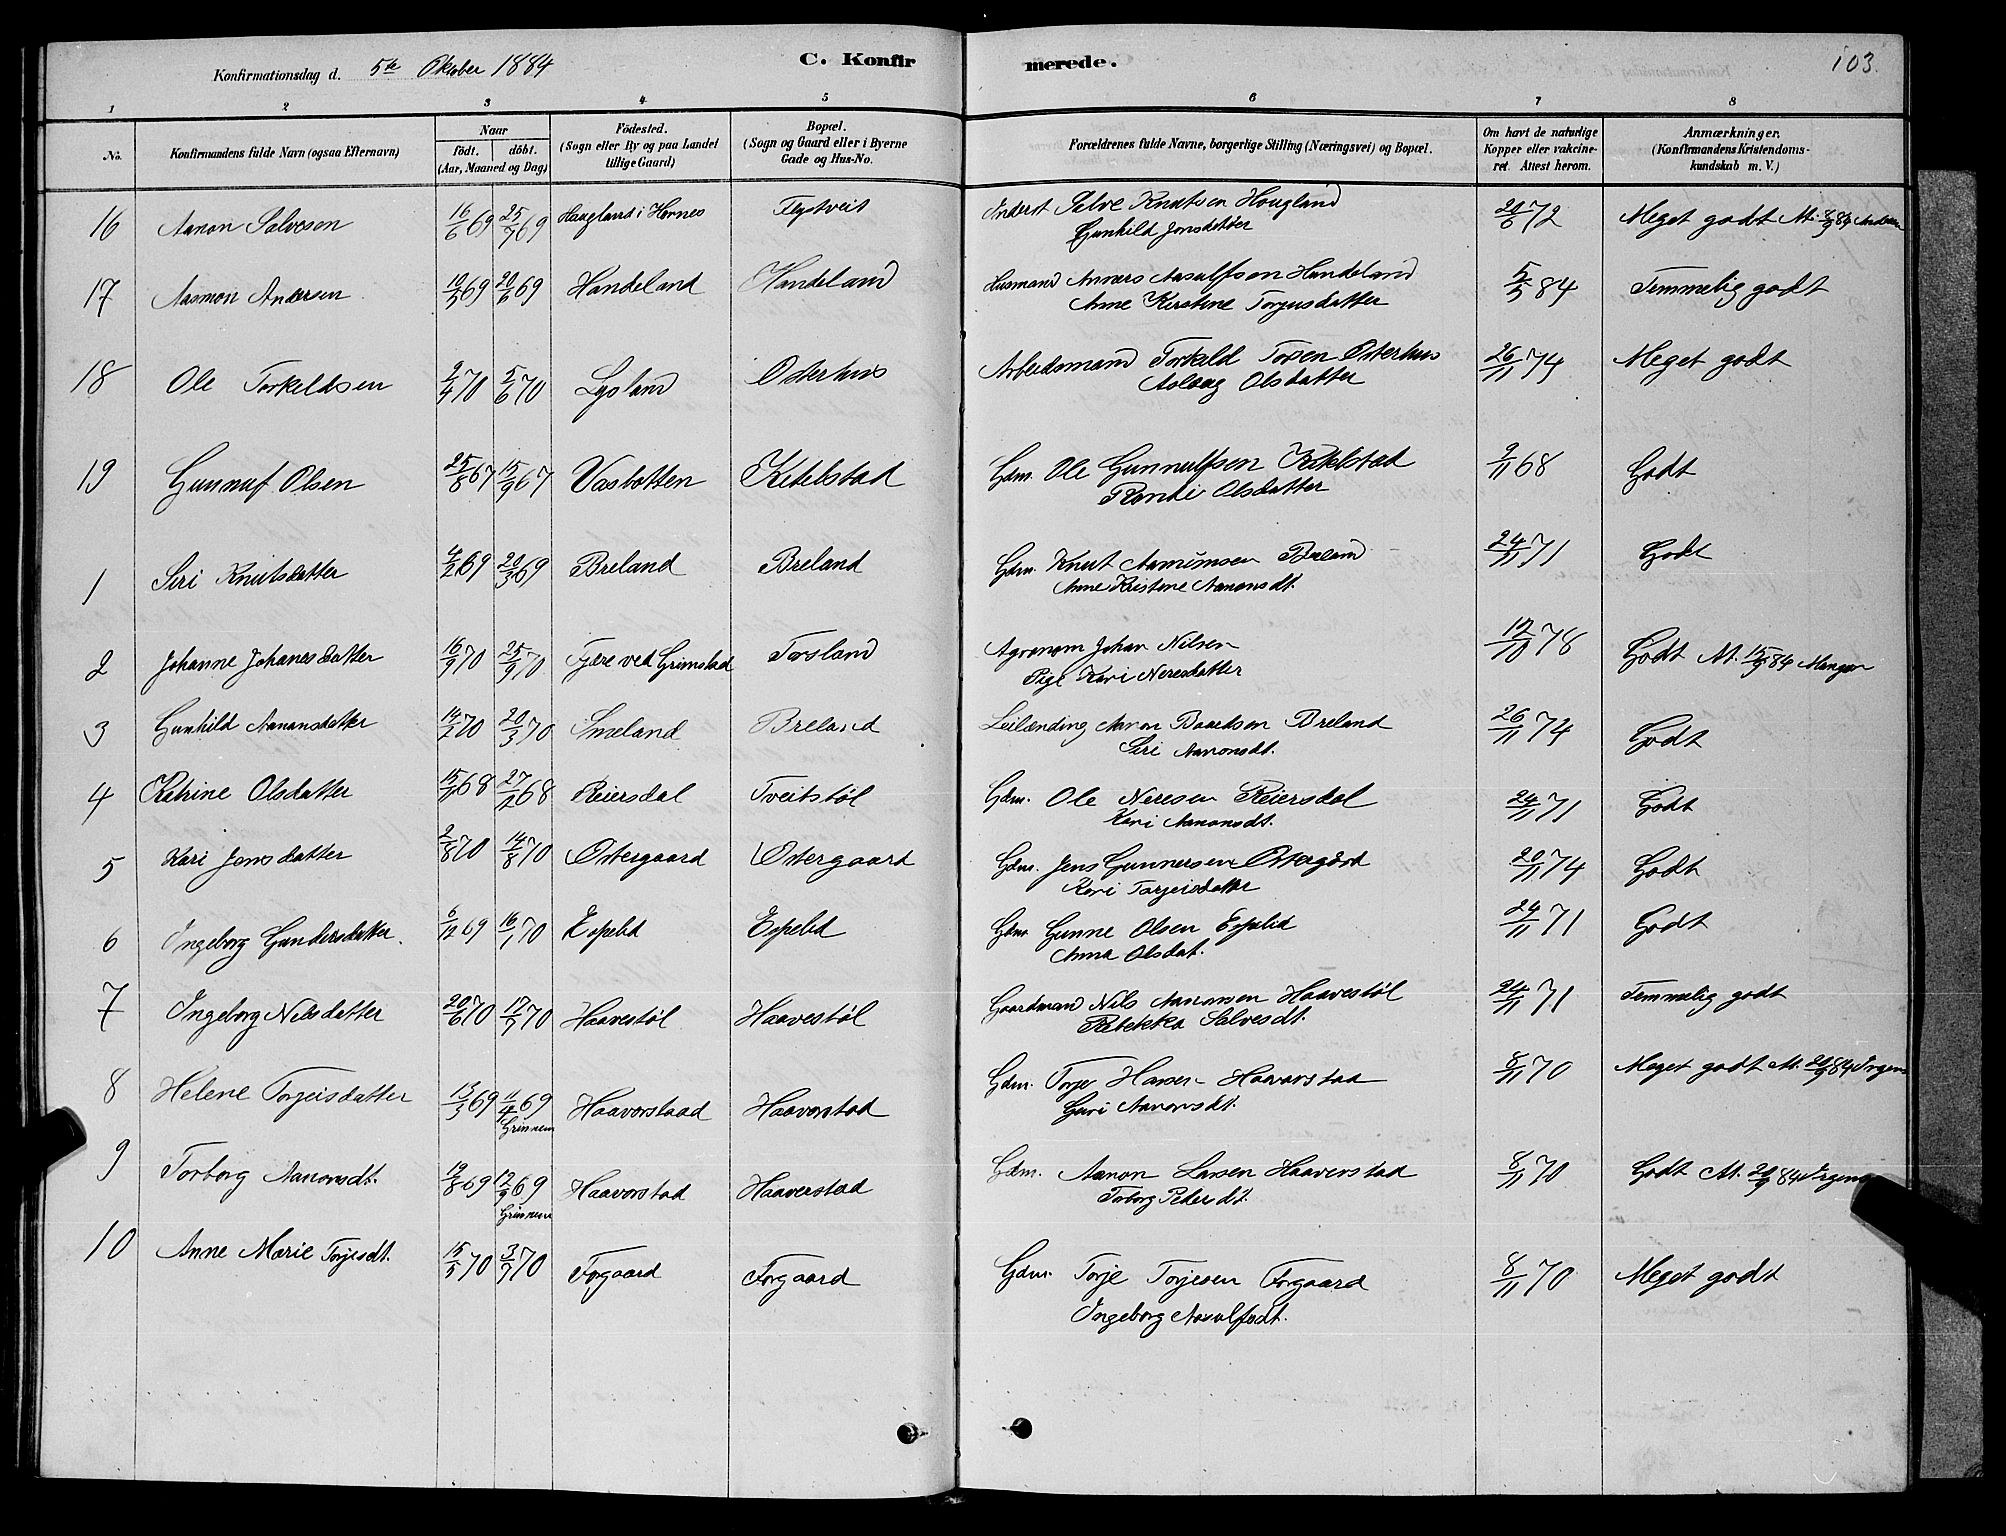 Konfirmationsdag d. 5te Oktober 1884
C. Konfir merede.
103.
1 2 3 4 5 6 7 8
No.
Konfirmandens fulde Navn (ogsaa Efternavn)
Naar
født. døbt.
(Aar, Maaned og Dag)
Fødested.
(Sogn eller By og paa Landet
tillige Gaard)
Bopæl.
(Sogn og Gaard eller i Byerne
Gade og Hus-No.
Forældrenes fulde Navne, borgerlige Stilling (Næringsvei) og Bopæl.
Om havt de naturlige
Kopper eller vakcine-
ret. Attest herom.
Anmærkninger.
(Konfirmandens Kristendoms-
kundskab m. V.)
16 Aanon Salvesen 16/6 69 25/7 69 Haugland i Hornes Flystveit Inderst Salve Knutsen Hougland 20/6 72 Meget godt At. 8/9 84
Gunhild Jonsdatter
17 Aasmon Andersen 10/5 69 20/6 69 Handeland Handeland Husmand Anners Aasulfsen Handeland 5/5 84 Temmelig godt
Anne Kirstine Torjusdatter
18 Ole Torkeldsen 2/4 70 5/6 70 Lysland Osterhus Arbeidsmand Torkeld Torsen Osterhus 26/11 74 Meget godt
Aslaug Olsdatter
19 Gunnuf Olsen 25/8 67 15/9 67 Vasbotten Ketelstad Gdm. Ole Gunnulfsen Ketelstad 2/11 68 Godt
Randi Olsdatter
1 Siri Knutsdatter 4/2 69 20/3 69 Breland Breland Gdm. Knut Aanunsen Breland 24/11 71 Godt
Anne Kristine Aanonsdt.
2 Johanne Johanesdatter 16/9 70 25/9 70 Fjære ved Grimstad Torsland Agronom Johan Nilsen 12/10 78 Godt At. 15/9 84
Pige Kari Neresdatter
3 Gunhild Aanonsdatter 14/2 70 20/3 70 Smeland Breland Leilænding Aanon Baardsen Breland 26/11 74 Godt
Siri Aanonsdt.
4 Katrine Olsdatter 15/11 68 27/12 68 Reiersdal Tveitstøl Gdm. Ole Neresen Reiersdal 24/11 71 Godt
Kari Aanonsdt.
5 Kari Jensdatter 2/8 70 14/8 70 Ostergaard Ostergaard Gdm. Jens Gunnersen Ostergård 20/11 74 Godt
Kari Torjeisdatter
6 Ingeborg Gundersdatter. 6/12 69 16/1 70 Espelid Espelid Gdm. Gunne Olsen Espelid 24/11 71 Godt
Anna Olsdat.
7 Ingeborg Nilsdatter 20/6 70 17/7 70 Haavestøl Haavestøl Gaardmand Nils Aanonsen Haavestøl 24/11 71 Temmelig godt
Rebekka Salvesdt.
8 Helene Torjeisdatter 13/3 69 11/4 69 Haavorstaad Haavorstad Gdm. Torje Hansen Haavorstad 8/11 70 Meget godt At. 20/9 84 Irgens
Grinnem Guri Aanonsdt.
9 Torborg Aanonsdt. 19/8 69 12/9 69 Haavorstad Haaverstad Gdm. Aanon Larsen Haaverstad 8/11 70 Godt At. 20/9 84 Irgens
Grinnem Toborg Pedersdt.
10 Anne Marie Torjesdt. 15/5 70 3/7 70 Forgaard Forgaard Gdm. Torje Torjesen Forgaard 8/11 70 Meget godt
Ingeborg Aasulfsdt.